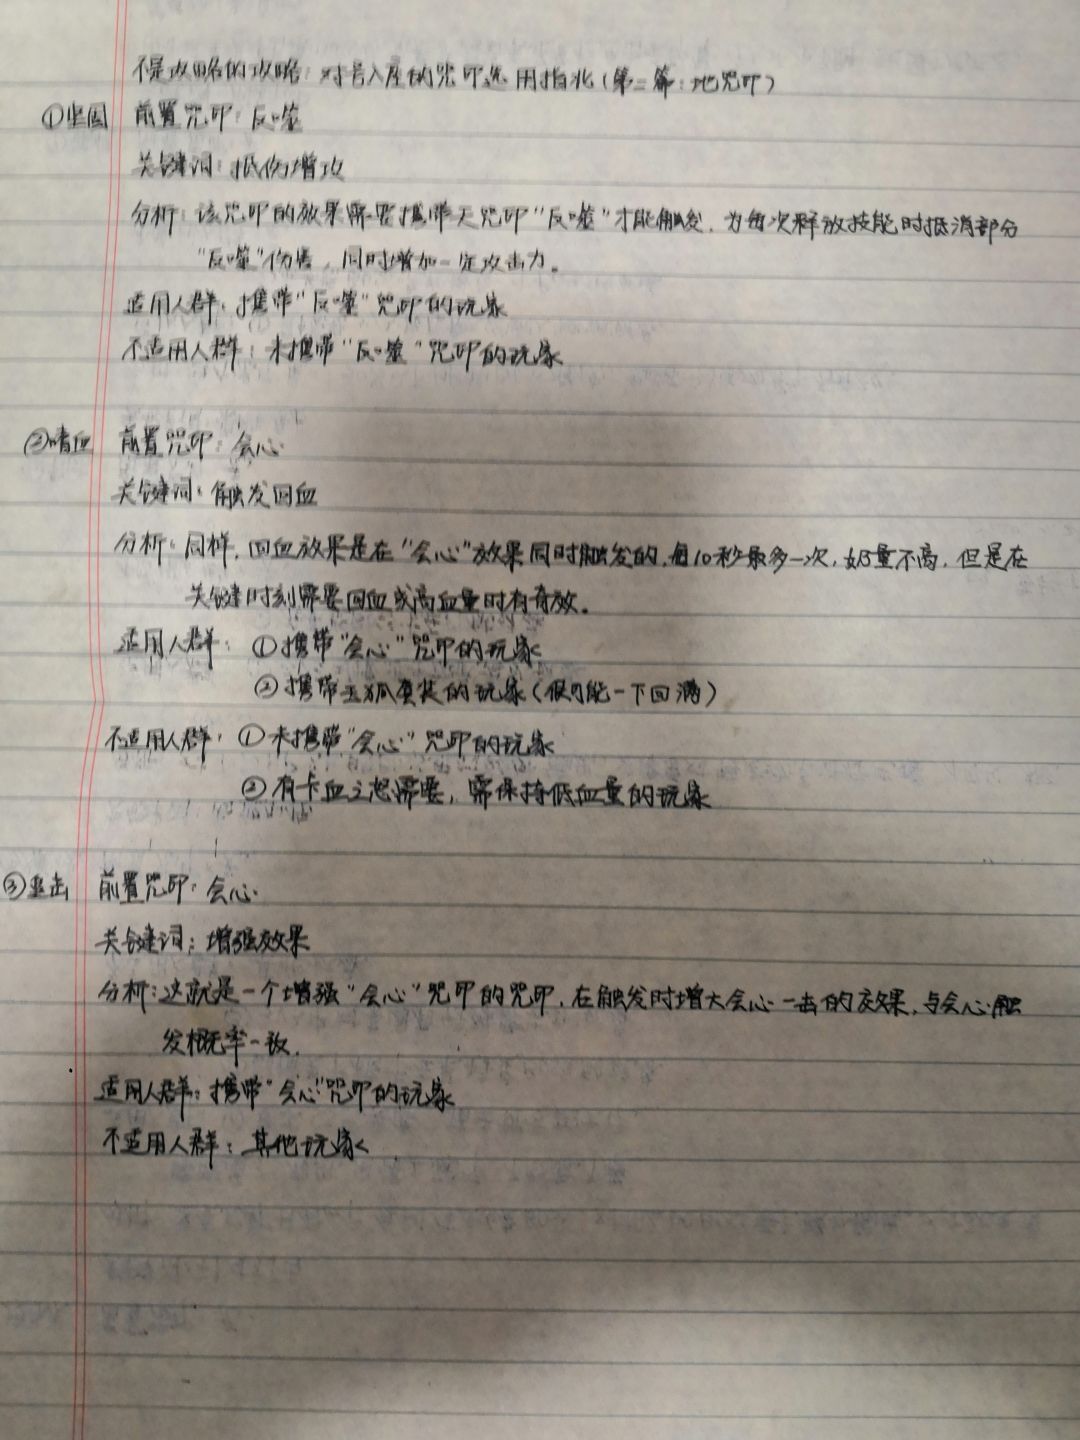 不是攻略的攻略：对号入座的咒印选用指北（第二篇：地咒印）
①坚固 前置咒印：反噬
关键词：抵伤增攻
分析：该咒印的效果需要携带天咒印“反噬”才能触发，为每次释放技能时抵消部分
“反噬”伤害，同时增加一定攻击力。
适用人群：携带“反噬”咒印的玩家
不适用人群：未携带“反噬”咒印的玩家
②嗜血 前置咒印：会心
关键词：触发回血
分析：同样，回血效果是在“会心”效果同时触发的，每10秒最多一次，奶量不高，但是在
关键时刻需要回血或高血量时有奇效。
适用人群：①携带“会心”咒印的玩家
②携带玉狐套装的玩家（很可能一下回满）
不适用人群：①未携带“会心”咒印的玩家
②有卡血之怒需要，需保持低血量的玩家
③重击 前置咒印：会心
关键词：增强效果
分析：这就是一个增强“会心”咒印的咒印，在触发时增大会心一击的效果，与会心触
发概率一致。
适用人群：携带“会心”咒印的玩家
不适用人群：其他玩家